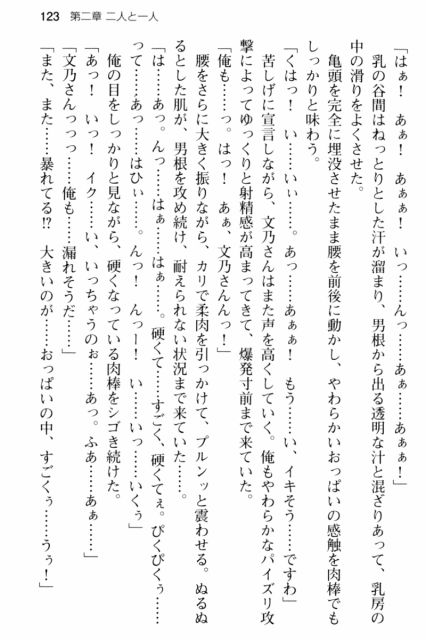 123　第二章 二人と一人
「はぁ！　あぁ！　あぁぁ！　いっ……んっ……あぁ……あぁぁ！」
乳の谷間はねっとりとした汗が溜まり、男根から出る透明な汁と混ざりあって、乳房の
中の滑りをよくさせた。
亀頭を完全に埋没させたまま腰を前後に動かし、やわらかいおっぱいの感触を肉棒でも
しっかりと味わう。
「くはっ！　い……いぃ……。あっ……あぁぁ！　もう……い、イキそう……ですわ」
苦しげに宣言しながら、文乃さんはまた声を高くしていく。俺もやわらかなパイズリ攻
撃によってゆっくりと射精感が高まってきて、爆発寸前まで来ていた。
「俺も……っ。はっ！　あぁ、文乃さんんっ！」
腰をさらに大きく振りながら、カリで柔肉を引っかけて、プルンッと震わせる。ぬるぬ
るとした肌が、男根を攻め続け、耐えられない状況まで来ていた……。
「は……あっ。んっ……はぁ……はぁ……。硬くて……すごく、硬くてぇ。ぴくぴくぅ……
って……あっ……はひぃ……。んっ！　んっー！　い……いっ……いくぅ」
俺の目をしっかりと見ながら、硬くなっている肉棒をシゴき続けた。
「あっ！　いっ！　イク……い、いっちゃうのぉ……あっ。ふあ……あぁ……」
「文乃さんっっっ……俺も……漏れそうだ……」
「また、また……暴れてる!?　大きいのが……おっぱいの中、すごくぅ……うぅ！」